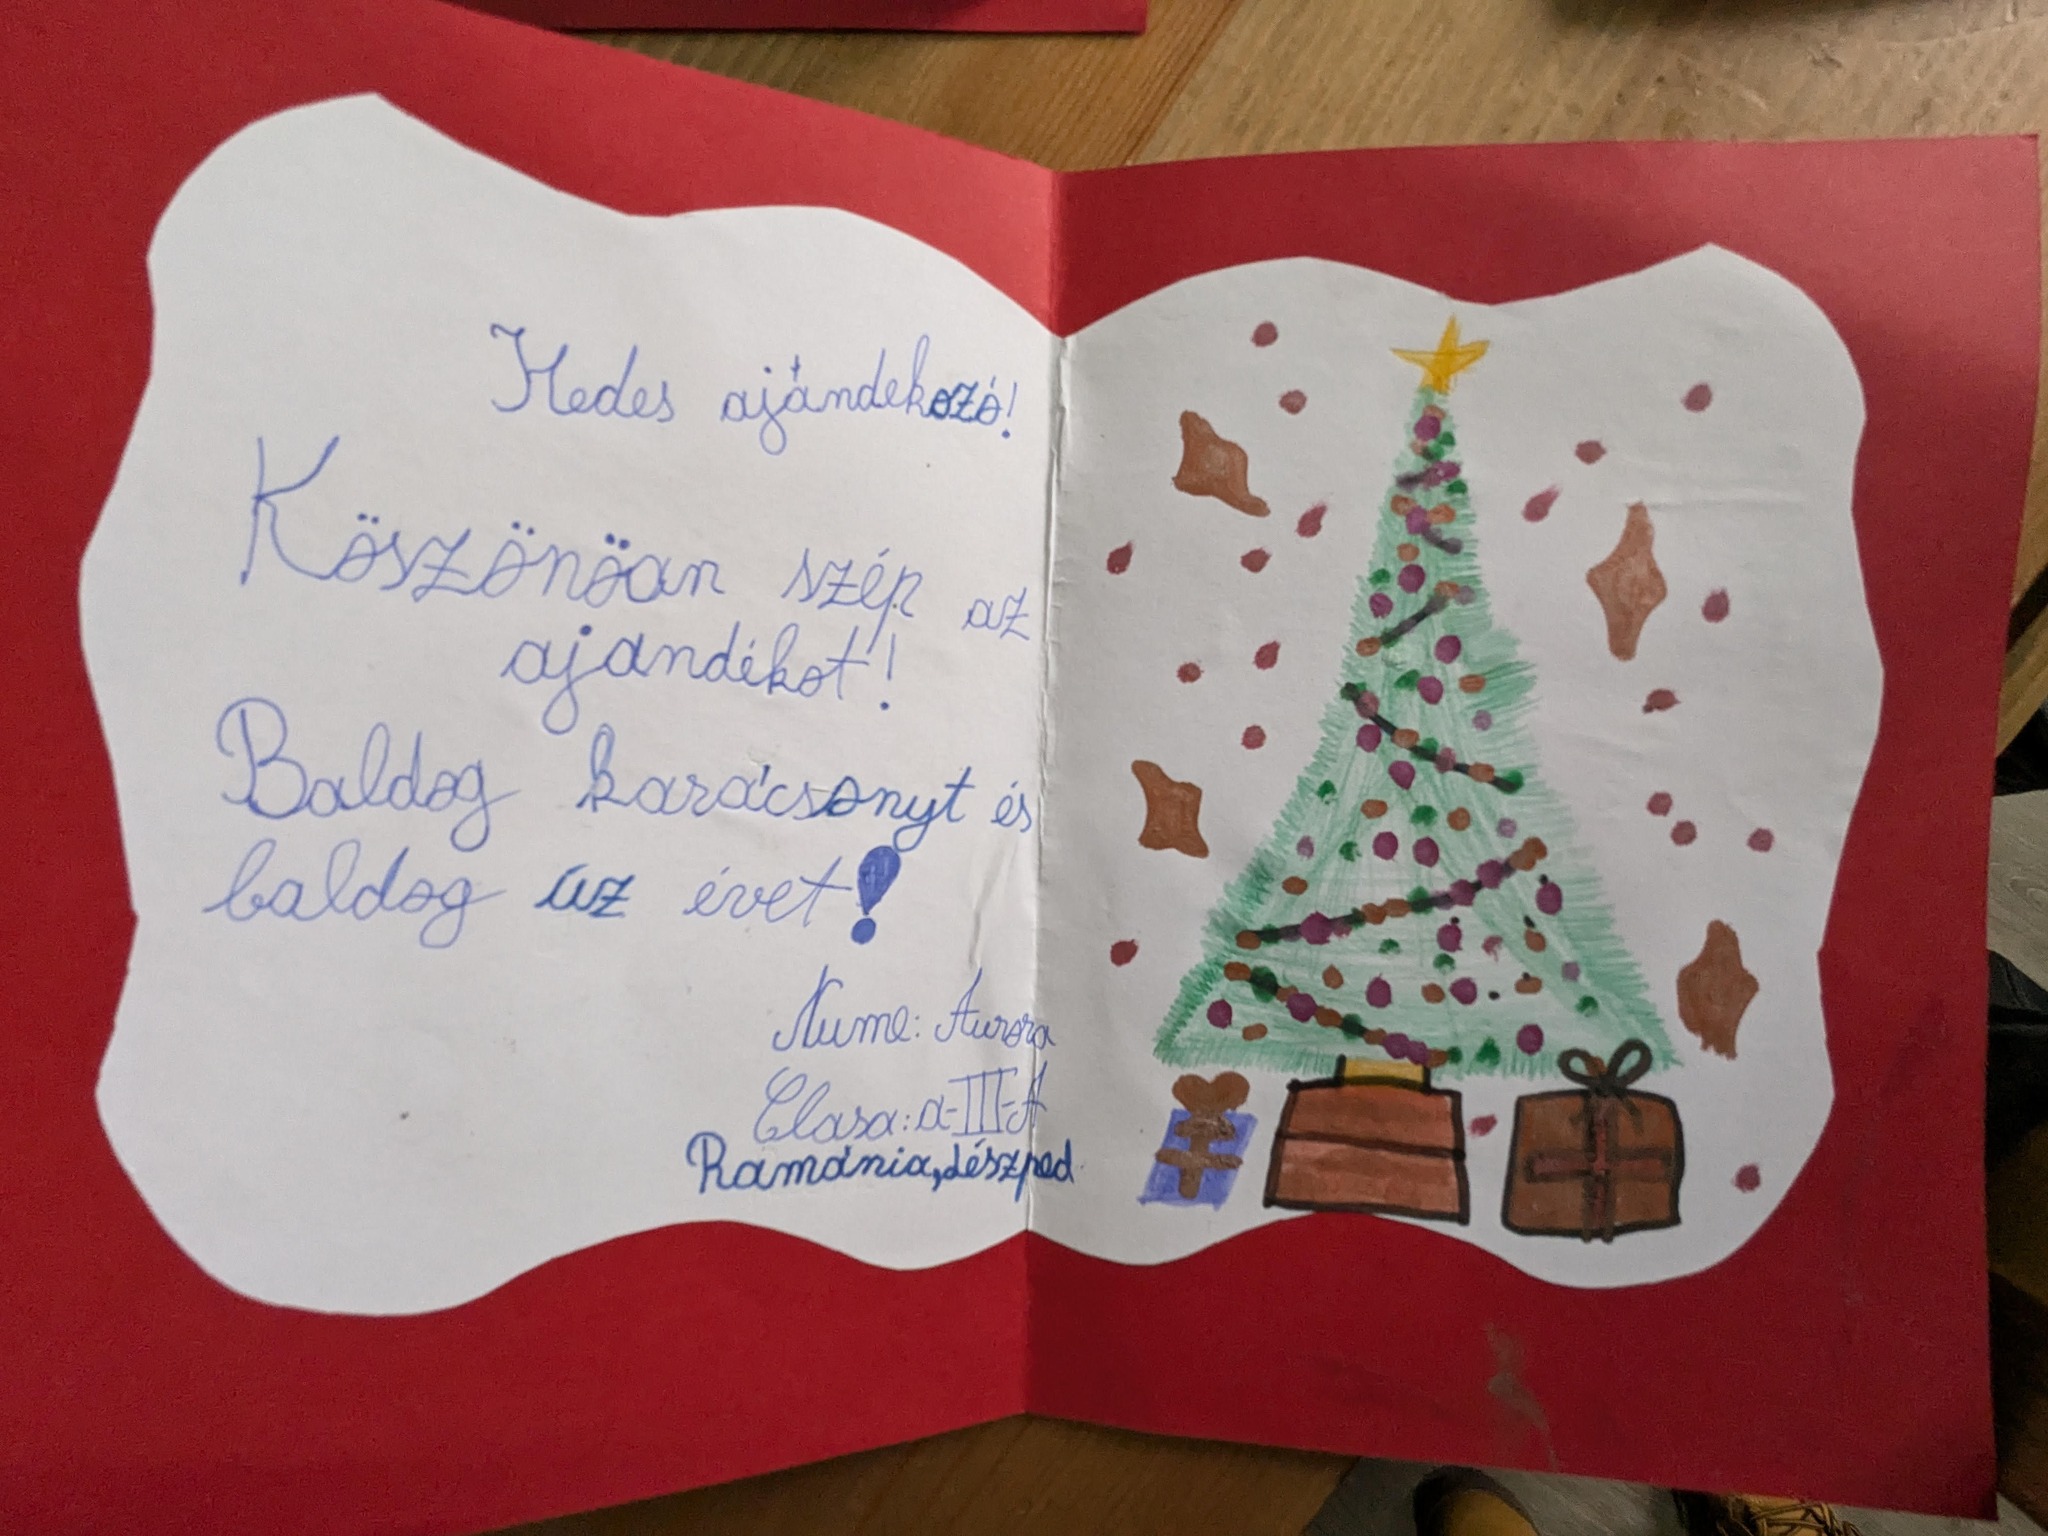 Kedes ajándekozó!
Köszönöan szép az
ajandékot!
Baldog karácsonyt és
baldog úz évet!
Nume: Aurora
Clasa: a-III-A
Romania, Lészped